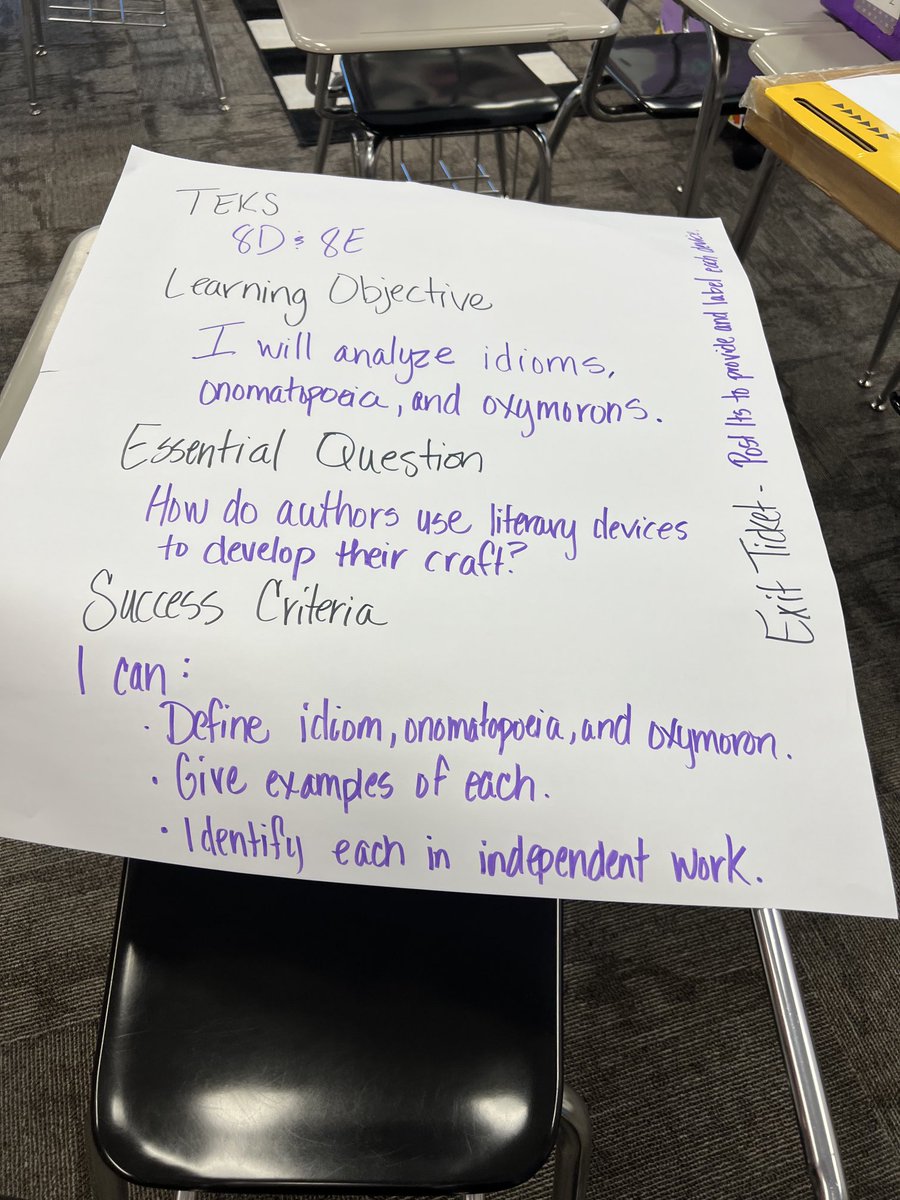 TEKS
8D & 8E
Learning Objective
I will analyze idioms,
onomatopoeia, and oxymorons.
Essential Question
How do authors use literary devices
to develop their craft?
Success Criteria
I can:
· Define idiom, onomatopoeia, and oxymoron.
· Give examples of each.
· Identify each in independent work.
Exit Ticket - Post Its to provide and label each device.